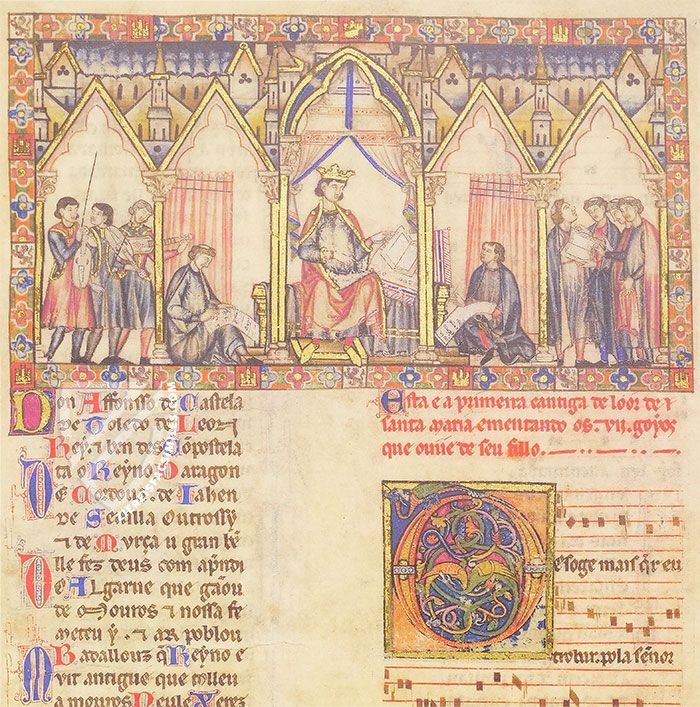 Don Affonsso de Castela
de Toledo de Leon
Rey ⁊ ben des Cōpostela
ta o Reyno Daragon
De Cordoua de Iahen
de Seuilla outrossy
⁊ de Murça u gran bē
lle fez deus com apndi
Do Algarue que gāou
de Mouros ⁊ nossa fe
meteu y. ⁊ ar poblou
Badallouz q̄ Reyno e
Muit antigue que tolleu
a mouros Neule Xerez
Esta e a primeira cantiga de loor de
santa maria ementando os .vii. goyos
que ouue de seu fillo.
Des oge mais q̄r eu
trobar pola señor